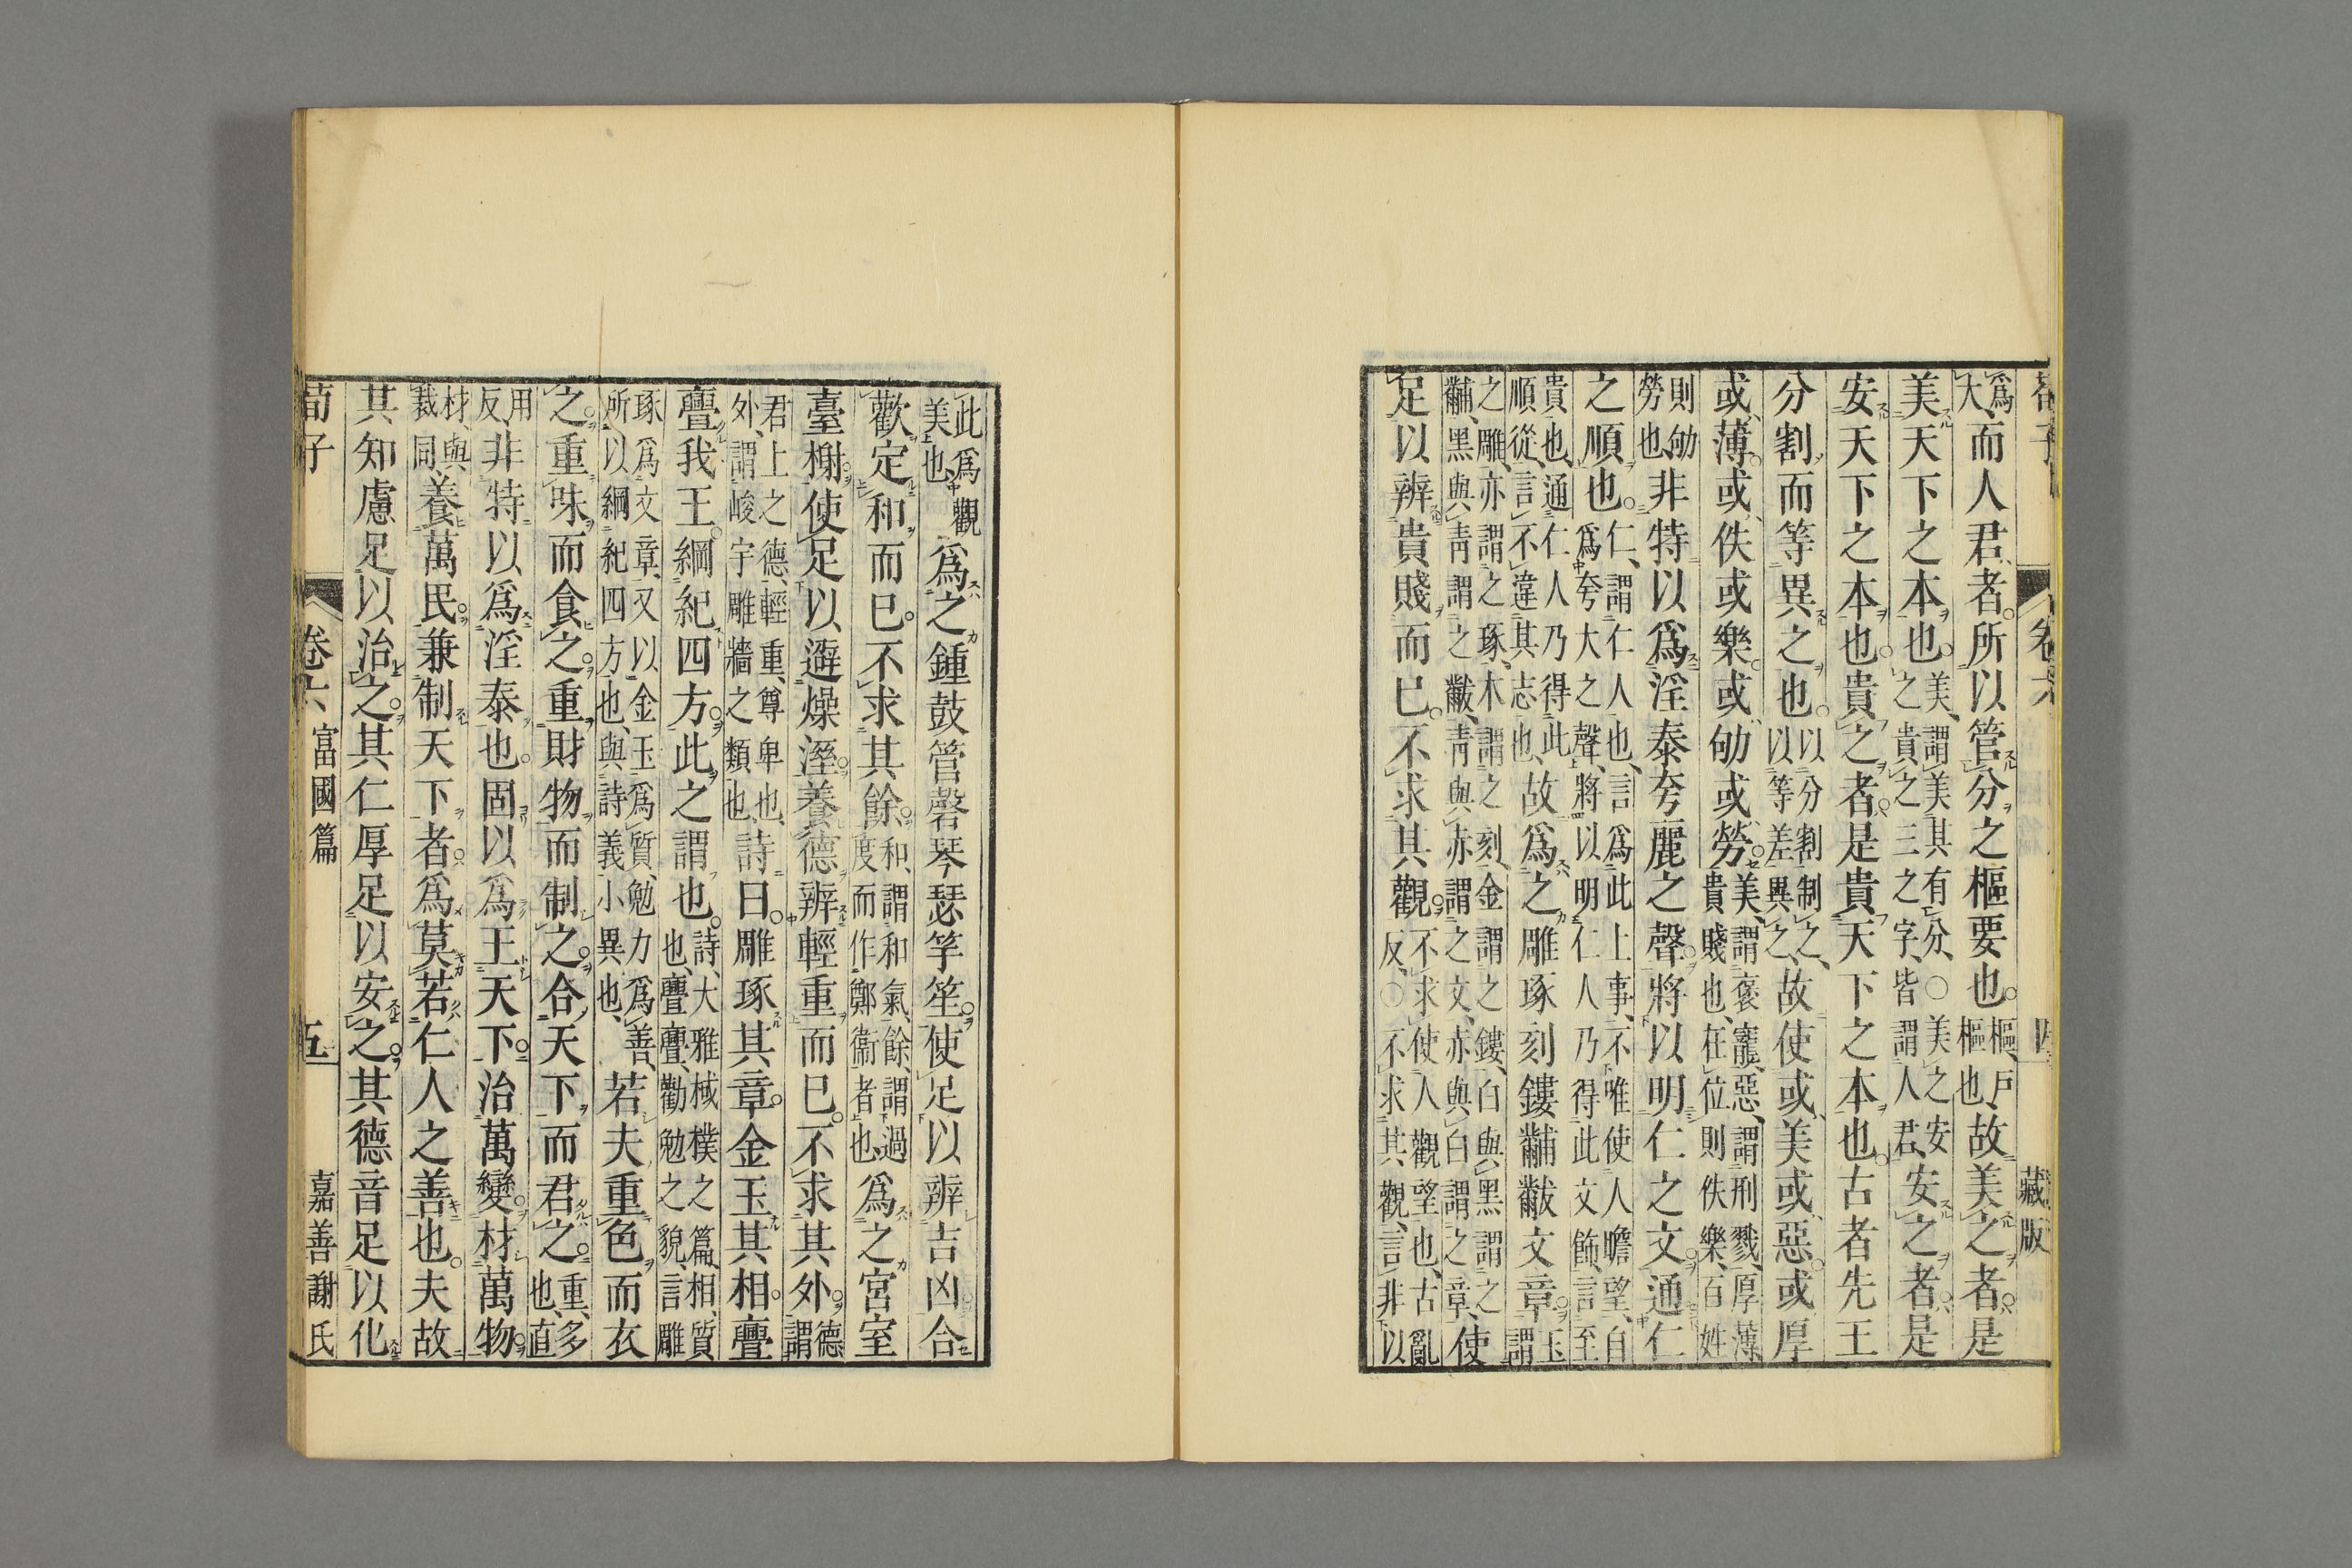 藏版
爲大、而人君者。所以管分之樞要也。樞、戶樞也、故美之者。是
美天下之本也。美、謂美其有分、○美之安之貴之三之字、皆謂人君、安之者。是
安天下之本也。貴之者。是貴天下之本也。古者先王
分割而等異之也。以分割制之、以等差異之、故使或美或惡。或厚
或薄。或佚或樂。或劬或勞。美、謂褒寵、惡、謂刑戮、厚薄、貴賤也、在位則佚樂、百姓
則劬勞也、非特以爲淫泰夸麗之聲。將以明仁之文。通仁
之順也。仁、謂仁人也、言爲此上事、不唯使人瞻望、自爲夸大之聲、將以明仁人乃得此文飾、言至
貴也、通仁人乃得此順從、言不違其志也、故爲之雕琢刻鏤黼黻文章。玉謂
之雕、亦謂之琢、木謂之刻、金謂之鏤、白與黑謂之黼、黑與靑謂之黻、靑與赤謂之文、赤與白謂之章、使
足以辨貴賤而已。不求其觀。不求使人觀望也、古亂反、○不求其觀、言非以
此爲觀美也、爲之鍾鼓管磬琴瑟竽笙。使足以辨吉凶合
歡定和而已。不求其餘。和、謂和氣、餘、謂過度而作鄭衞者也、爲之宮室
臺榭。使足以避燥溼養德辨輕重而已。不求其外。德謂
君上之德、輕重、尊卑也、外、謂峻宇雕牆之類也、詩曰。雕琢其章。金玉其相。亹
亹我王。綱紀四方。此之謂也。詩、大雅棫樸之篇、相、質也、亹亹、勸勉之貌、言雕
琢爲文章、又以金玉爲質、勉力爲善、所以綱紀四方也、與詩義小異也、若夫重色而衣
之。重味而食之。重財物而制之。合天下而君之。重、多也、直
用反、非特以爲淫泰也。固以爲王天下。治萬變。材萬物。
材、與裁同、養萬民。兼制天下者。爲莫若仁人之善也。夫故
其知慮足以治之。其仁厚足以安之。其德音足以化
荀子 卷六 富國篇 五 嘉善謝氏